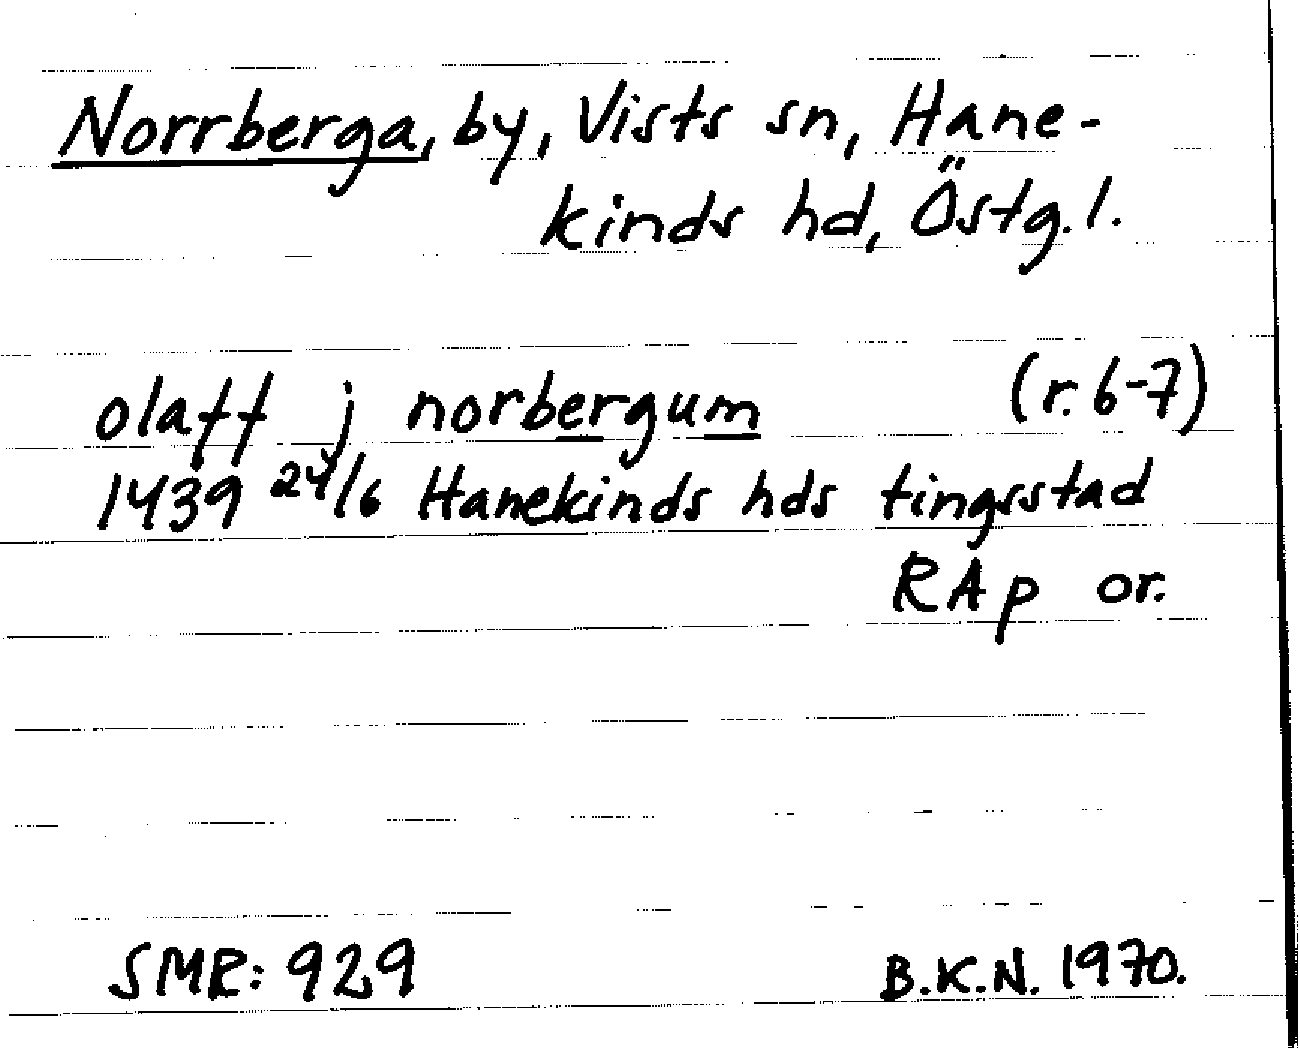 Norrberga, by, Vists sn, Hane-
kinds hd, Östg. l.
olaff j norbergum (r. 6-7)
1439 24/6 Hanekinds hds tingsstad
RAp or.
SMR: 929 B.K.N. 1970.